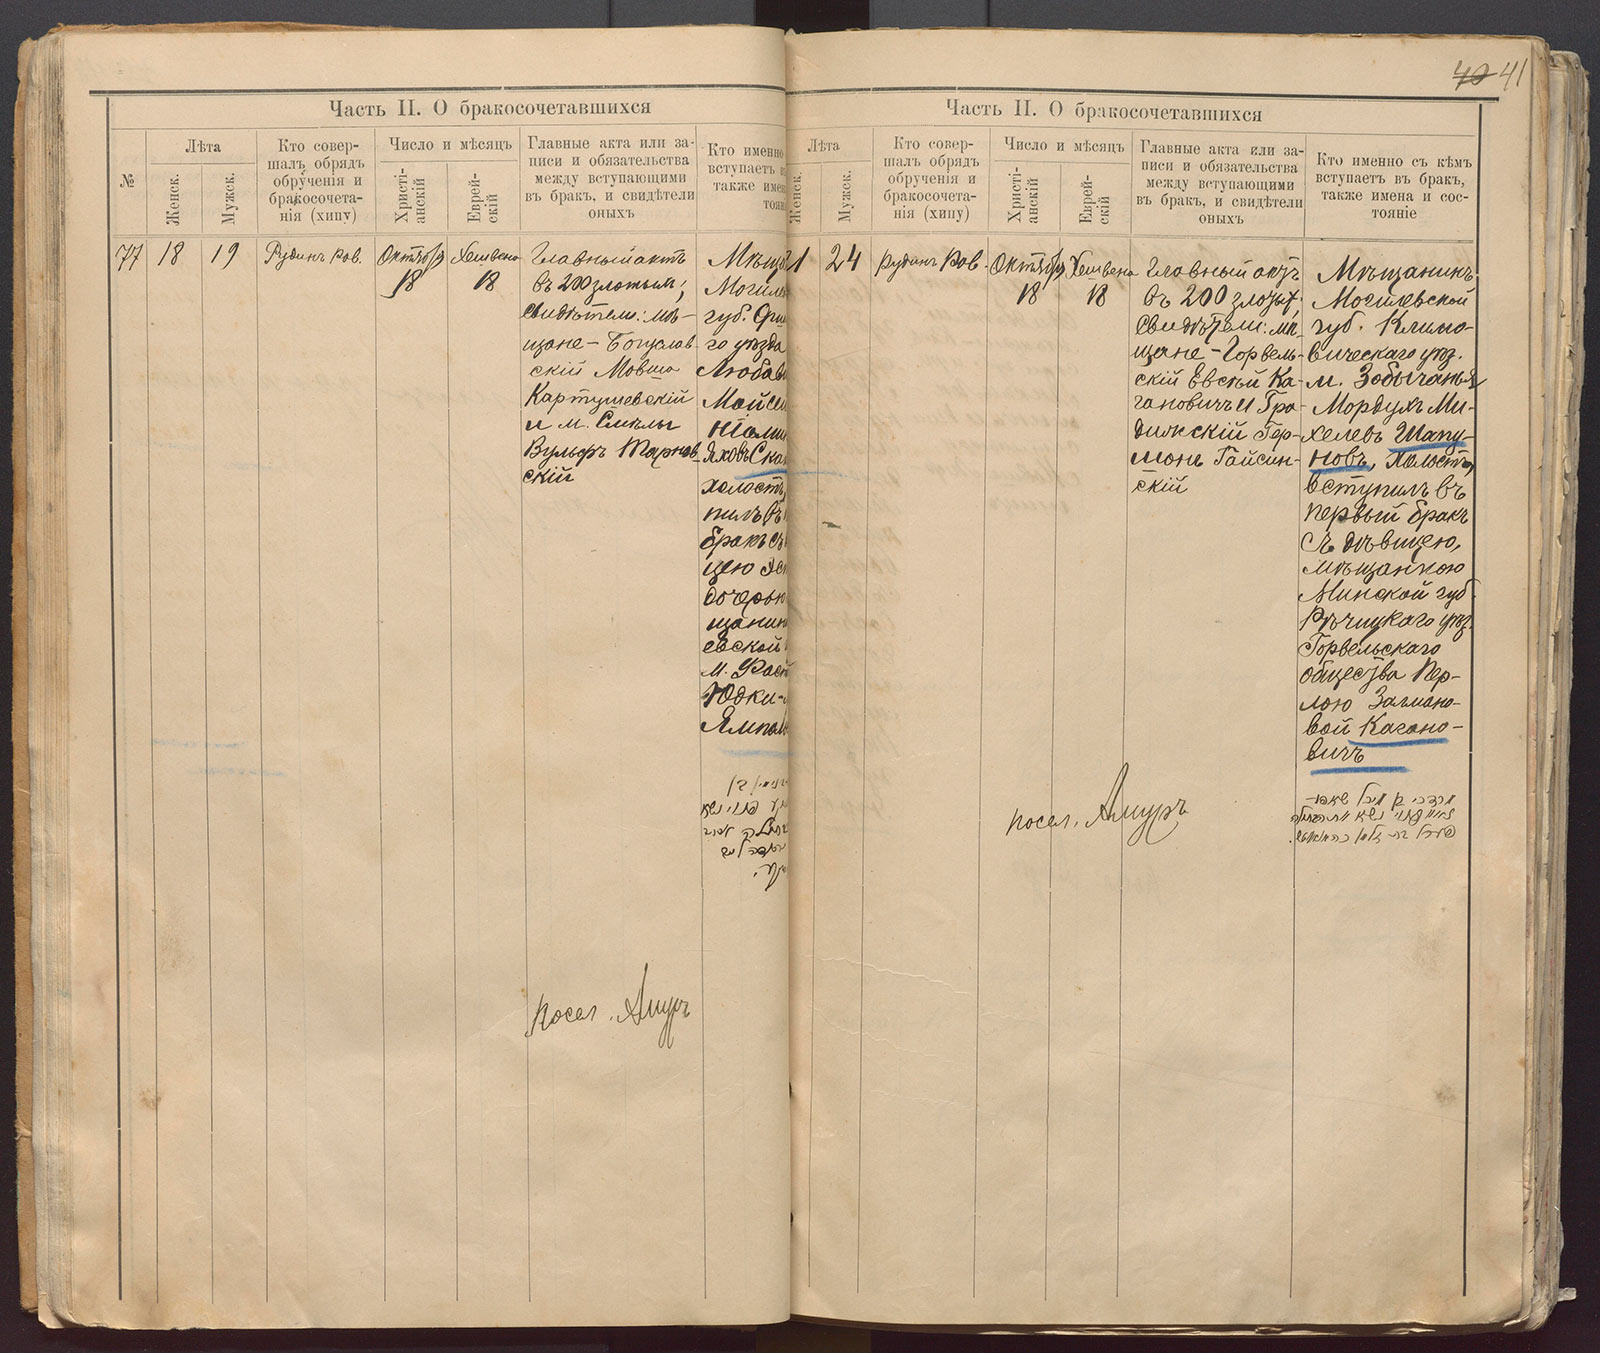 40 41
Часть II. О бракосочетавшихся
№
Лѣта
Женск.
Мужск.
Кто совер-
шалъ обрядъ
обрученія и
бракосочета-
нія (хипу)
Число и мѣсяцъ
Христі-
анскій
Еврей-
скій
Главные акта или за-
писи и обязательства
между вступающими
въ бракъ, и свидѣтели
оныхъ
Кто именно
вступаетъ в
также имен
тояні
77
18
19
Рудинъ Ков.
Октября
18
Хешвена
18
Главный актъ
въ 200 злотым;
Свидѣтели: мѣ-
щане - Богуслав-
скій Мовша
Картушевскій
и м. Смѣлы
Вульфъ Тарнов-
скій
Мѣщ
Могиле
губ.
го уѣзда
Любав
Мойсе
холостъ,
пилъ въ
бракъ съ
цею
дочерью
щанин
евской
м. Фаст
Юдки-
Ямполь
посел. Амуръ
Часть II. О бракосочетавшихся
Лѣта
Женск.
Мужск.
Кто совер-
шалъ обрядъ
обрученія и
бракосочета-
нія (хипу)
Число и мѣсяцъ
Христі-
анскій
Еврей-
скій
Главные акта или за-
писи и обязательства
между вступающими
въ бракъ, и свидѣтели
оныхъ
Кто именно съ кѣмъ
вступаетъ въ бракъ,
также имена и сос-
тояніе
1
24
Рудинъ Ков.
Октября
18
Хешвена
18
Главный актъ
въ 200 злотых;
Свидѣтели: мѣ-
щане - Горвель-
скій Евсѣй Ка-
гановичъ и Гра-
дижскій Гер-
шонъ Гайсин-
скій
Мѣщанинъ
Могилевской
губ. Климо-
вическаго уѣз.
м. Забычанья
Мордухъ Ми-
хелевъ Шапу-
новъ, холостъ,
вступилъ въ
первый бракъ
съ дѣвицею,
мѣщанкою
Минской губ.
Рѣчицкаго уѣз.
Горвельскаго
общества Пер-
лою Залмано-
вой Кагано-
вичъ
מרדכי בן מיכל שאפו-
פערל בת זלמן קאגאנאוויטש.
посел. Амуръ